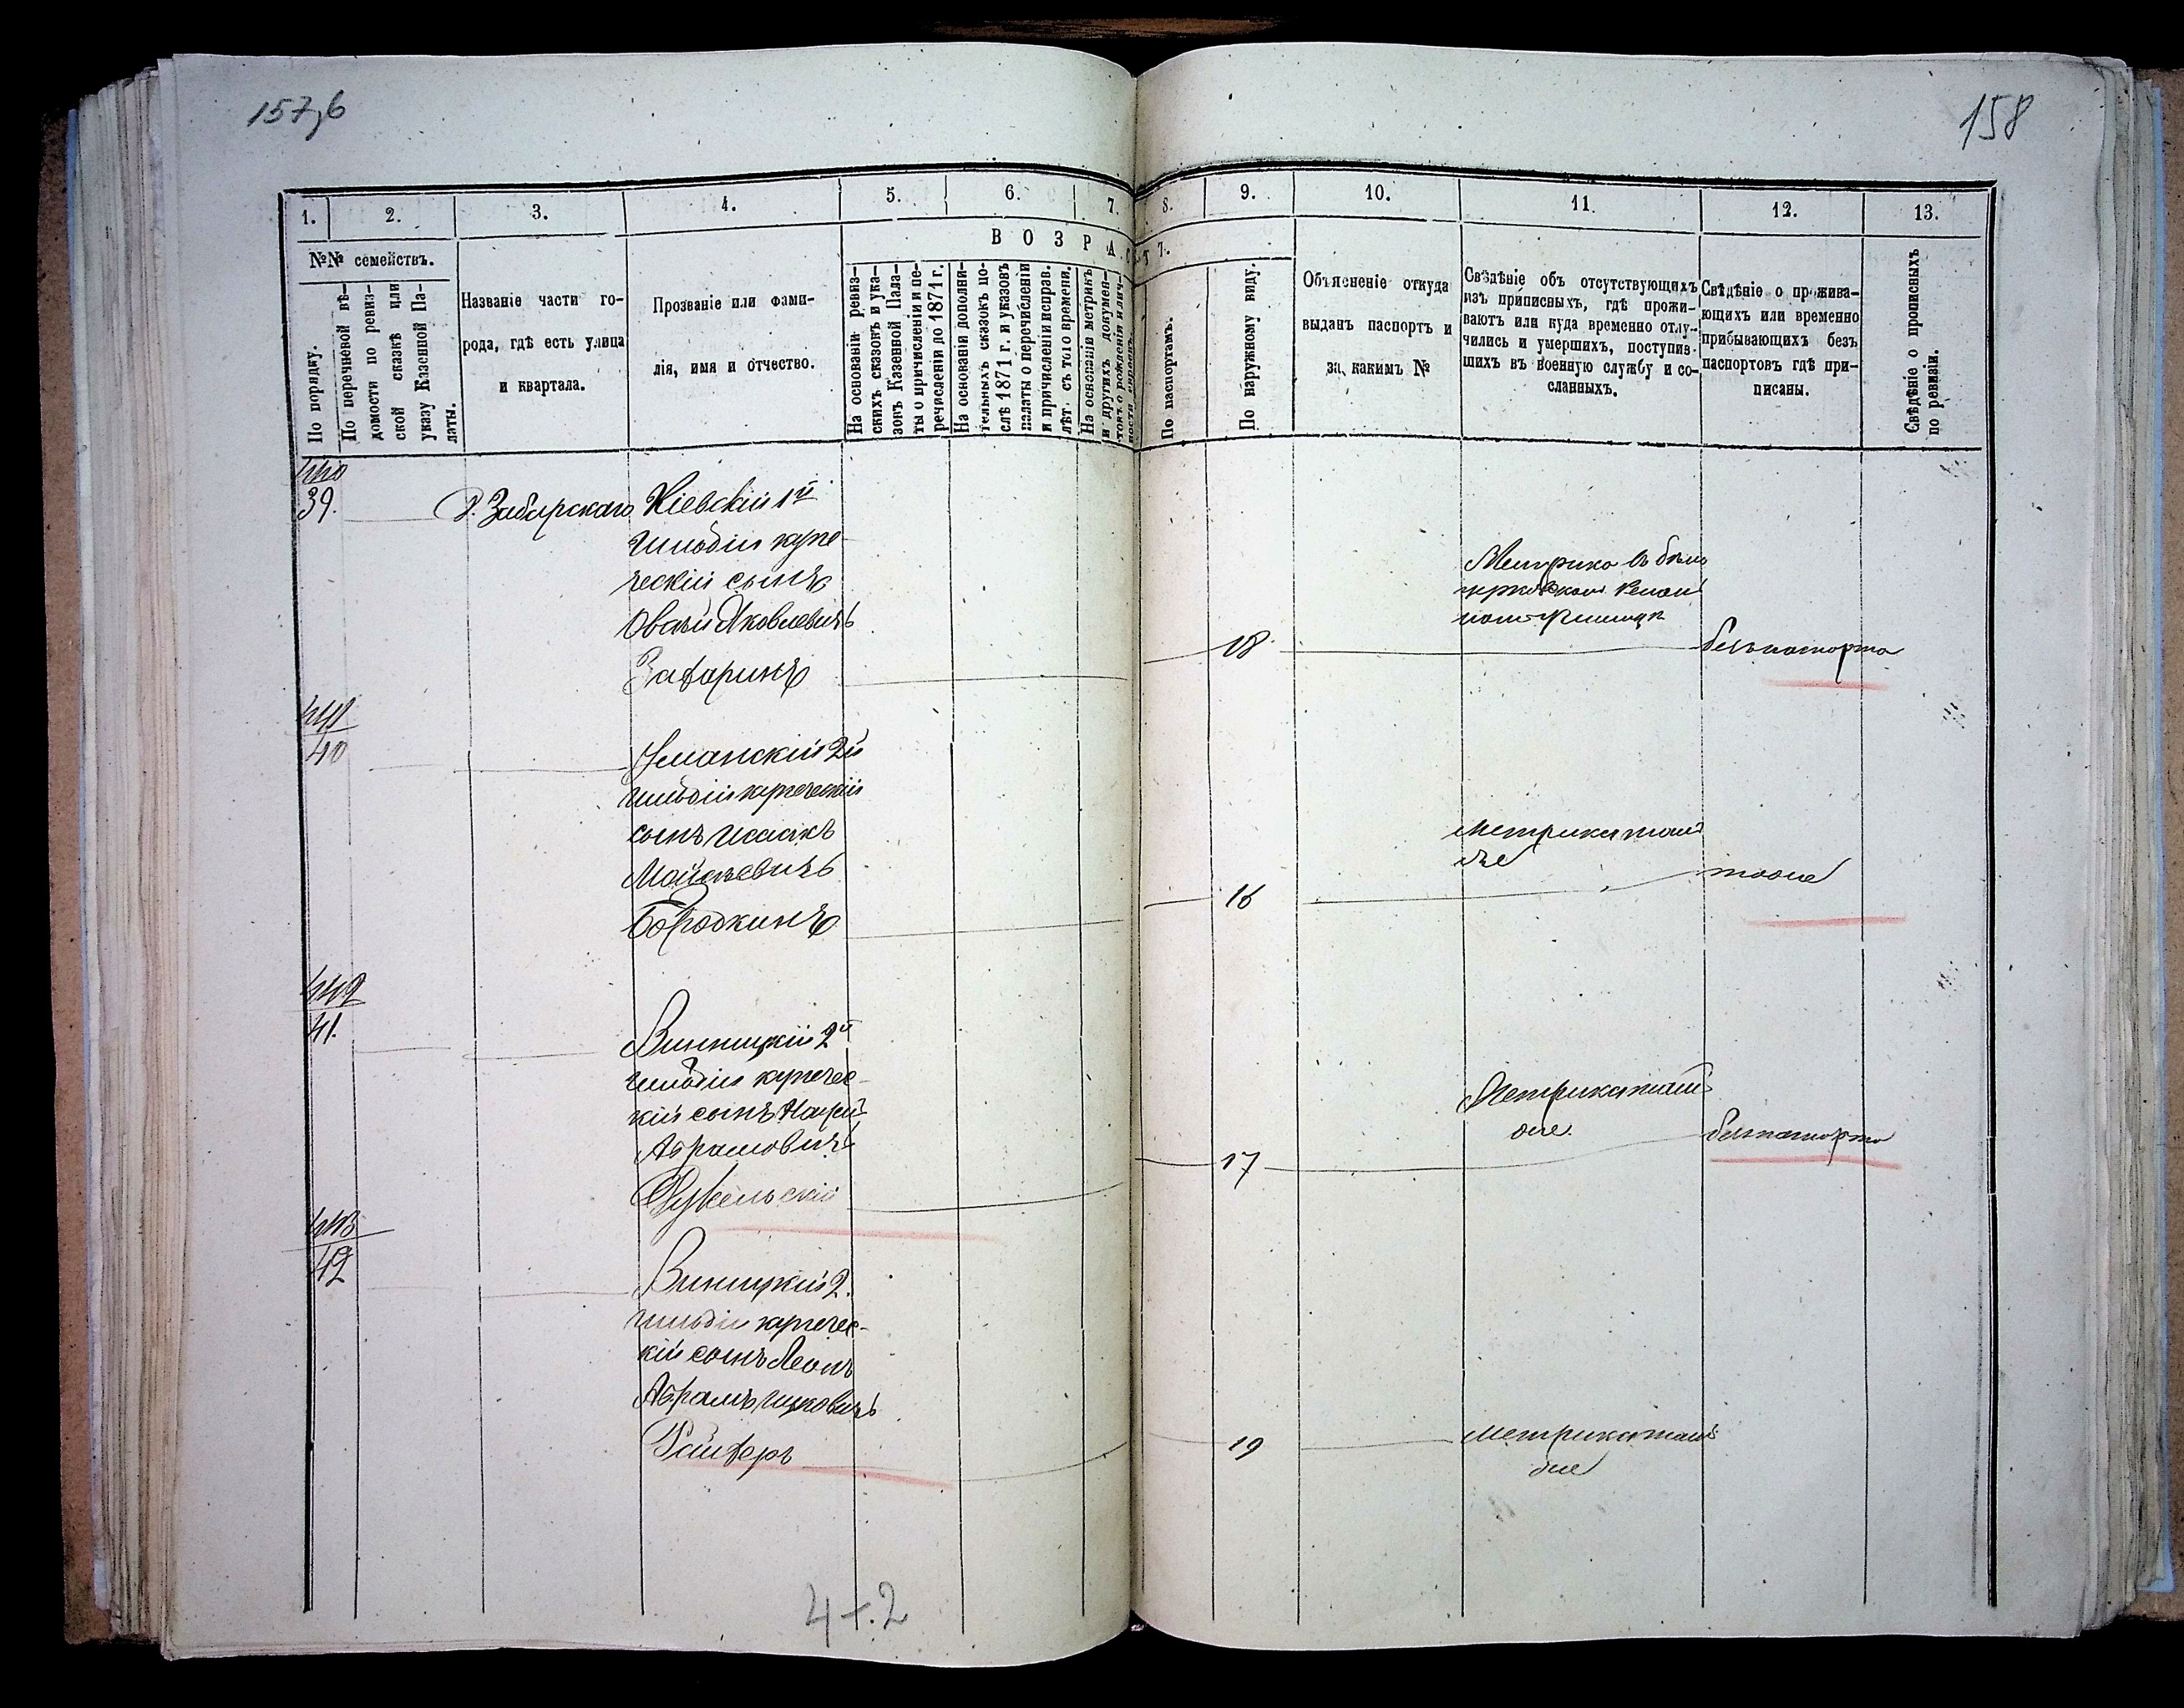 157об
158
1.
2.
3.
4.
5.
6.
7.
8.
9.
10.
11.
12.
13.
№№ семействъ.
ВОЗРАСТЪ.
По порядку.
По перечневой вѣ-
домости по ревиз-
ской сказкѣ или
указу Казенной Па-
латы.
Названіе части го-
рода, гдѣ есть улица
и квартала.
Прозваніе или фами-
лія, имя и отчество.
На основаніи ревиз-
скихъ сказокъ и ука-
зовъ Казенной Пала-
ты о причисленіи и пе-
речисленіи до 1871 г.
На основаніи дополни-
тельныхъ сказокъ по-
слѣ 1871 г. и указовъ
палаты о перечисленіи
и причисленіи исправ.
лѣт. съ того времени.
На основаніи метрикъ
и другихъ докумен-
товъ о рожденіи и лич-
По паспортамъ.
По наружному виду.
Объясненіе откуда
выданъ паспортъ и
за какимъ №
Свѣдѣніе объ отсутствующихъ
изъ приписныхъ, гдѣ прожи-
ваютъ или куда временно отлу-
чились и умершихъ, поступив-
шихъ въ военную службу и со-
сланныхъ.
Свѣдѣніе о прожива-
ющихъ или временно
прибывающихъ безъ
паспортовъ гдѣ при-
писаны.
Свѣдѣніе о прописныхъ
по ревизіи.
440
39.
Д. Забарскаго
Кіевскій 1й
гильдіи купе-
ческій сынъ
Овсѣй Яковлевичъ
Заваринъ
18
Метрика въ бѣло
церковском
безъ паспорта
441
40
Уманскій 2й
гильдіи купеческій
сынъ Исаакъ
Мойсѣевичъ
Бородкинъ
16
Метрика там
же
тоже
442
41.
Винницкій 2й
гильдіи купечес-
кій сынъ
Абрамовичъ
17
Метрика там
же.
безъ паспорта
443
42
Виницкій 2.
гильдіи купечес-
кій сынъ Леонъ
Абрамъ Ицковичъ
Райферъ
19
Метрика там
же
4 т. 2